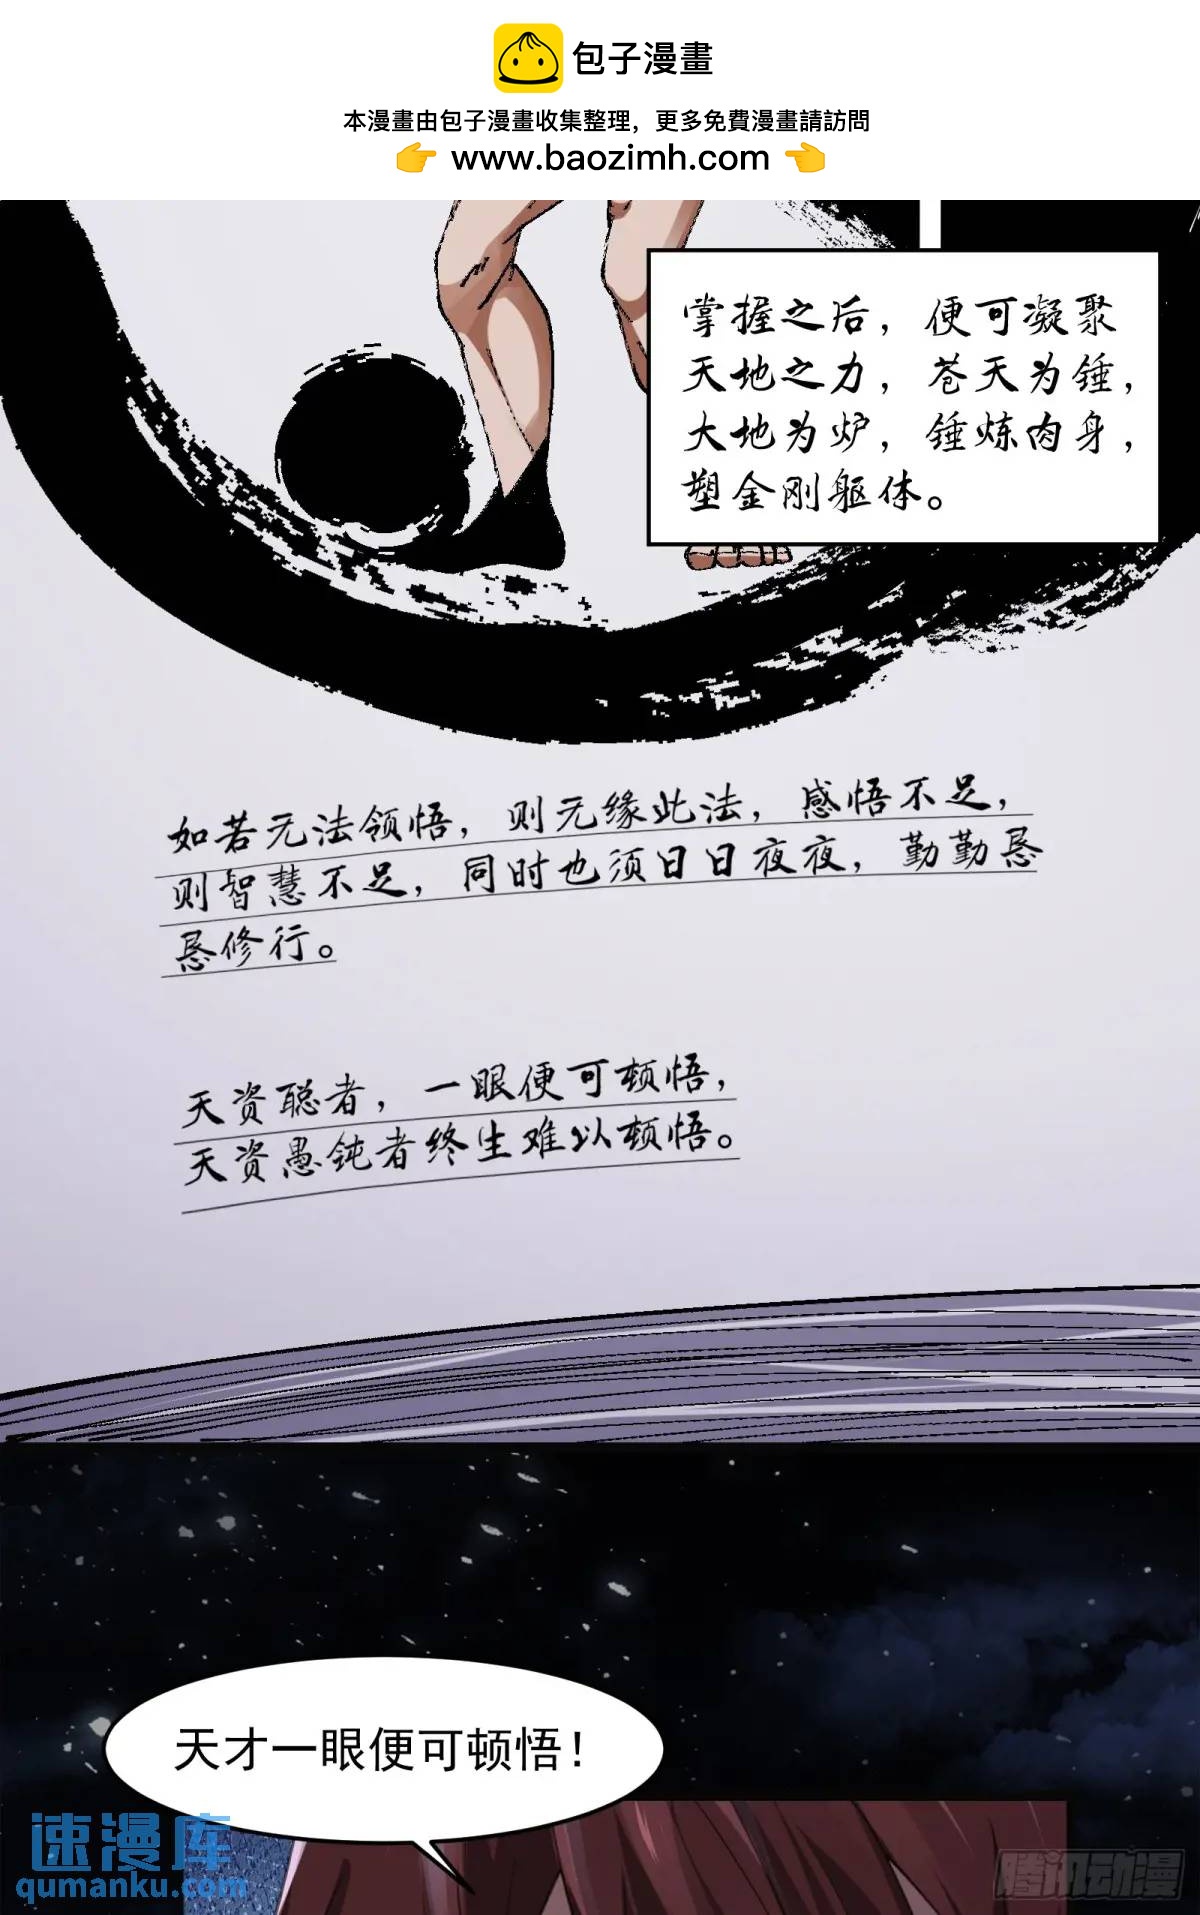 包子漫畫
本漫畫由包子漫畫收集整理，更多免費漫畫請訪問
👉 www.baozimh.com 👈
掌握之后，便可凝聚
天地之力，苍天为锤，
大地为炉，锤炼肉身，
塑金刚躯体。
如若无法领悟，则无缘此法，感悟不足，
则智慧不足，同时也须日日夜夜，勤勤恳
恳修行。
天资聪者，一眼便可顿悟，
天资愚钝者终生难以顿悟。
天才一眼便可顿悟！
速漫库
qumanku.com
腾讯动漫